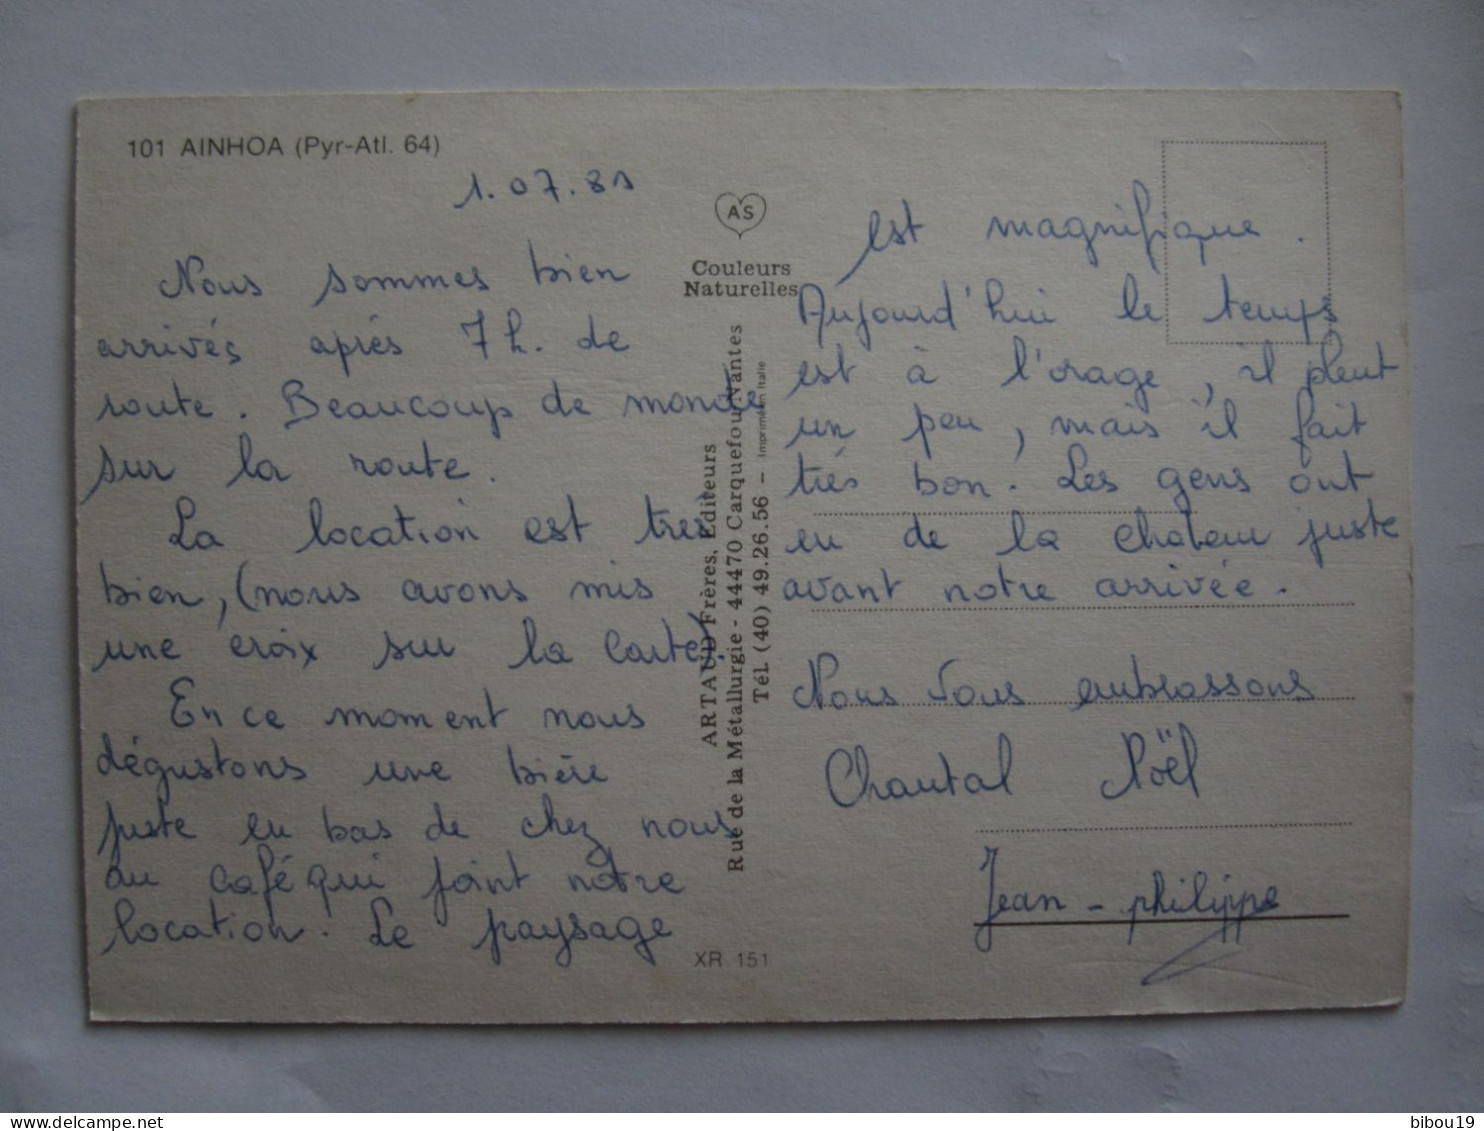 101 AINHOA (Pyr-Atl. 64)
1.07.81
Nous sommes bien
arrivés après 7h. de
route. Beaucoup de monde
sur la route.
La location est très
bien, (nous avons mis
une croix sur la carte).
En ce moment nous
dégustons une bière
juste en bas de chez nous
au café qui joint notre
location. Le paysage
AS
Couleurs
Naturelles
ARTAUD Frères, Editeurs
Rue de la Métallurgie - 44470 Carquefou-Nantes
Tél. (40) 49.26.56 - Imprimé en Italie
XR 151
est magnifique.
Aujourd'hui le temps
est à l'orage, il pleut
un peu, mais il fait
très bon. Les gens ont
eu de la chaleur juste
avant notre arrivée.
Nous vous embrassons
Chantal Noël
Jean-philippe
bibou19